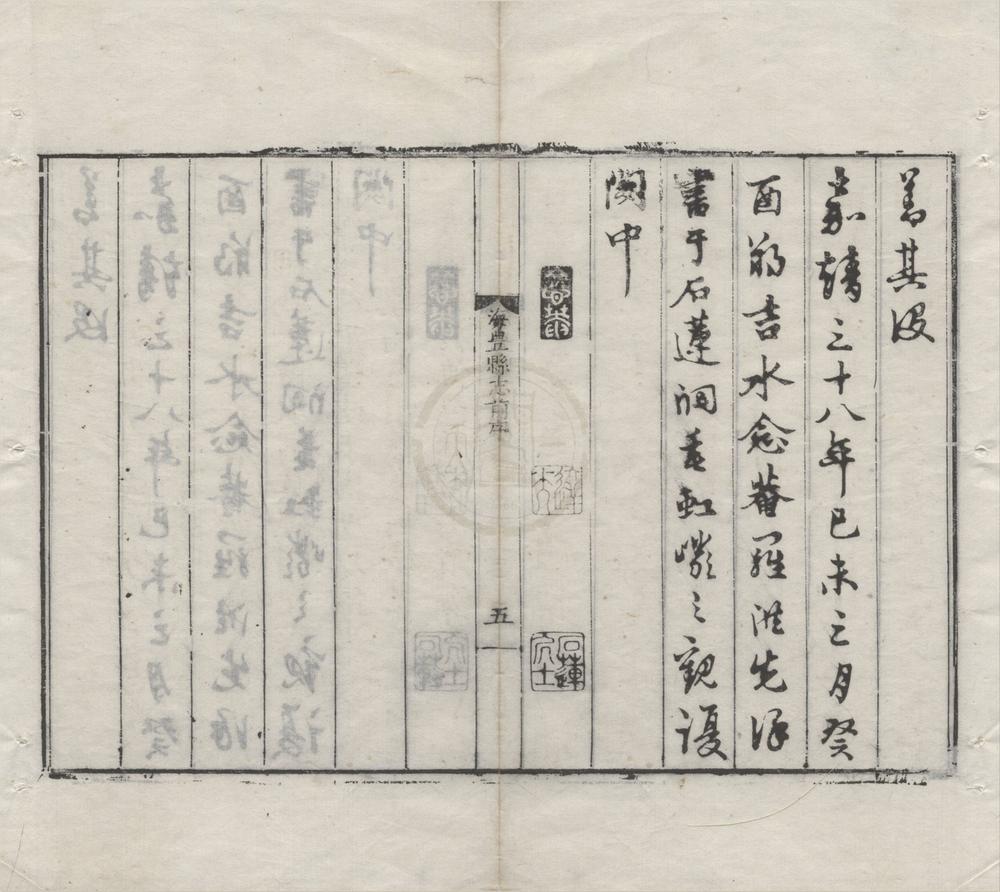 其
嘉靖三十八年己未三月癸
酉朔吉水念菴羅洪先
書于石蓮洞垂虹巖之觀復
閣中
念菴
達夫
石蓮
海豐縣志前序
五